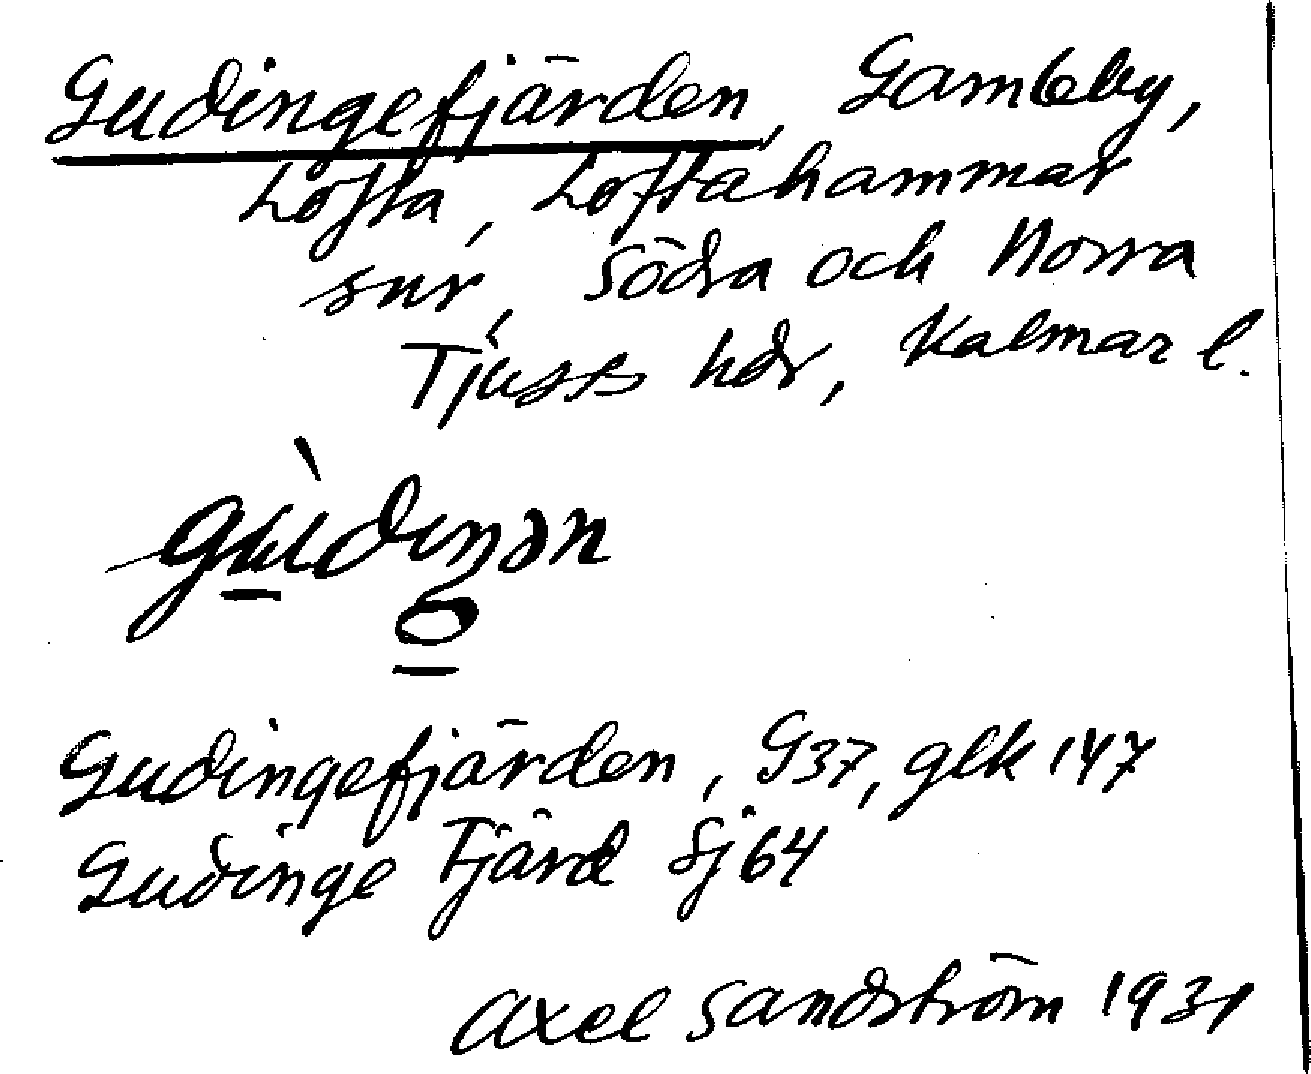 Gudingefjärden, Gamleby,
Lofta, Loftahammar
snr, Södra och Norra
Tjusts hdr, Kalmar l.
Gudingefjärden, G37, glk 147
Gudinge Fjärd Sj 64
Axel Sandström 1931